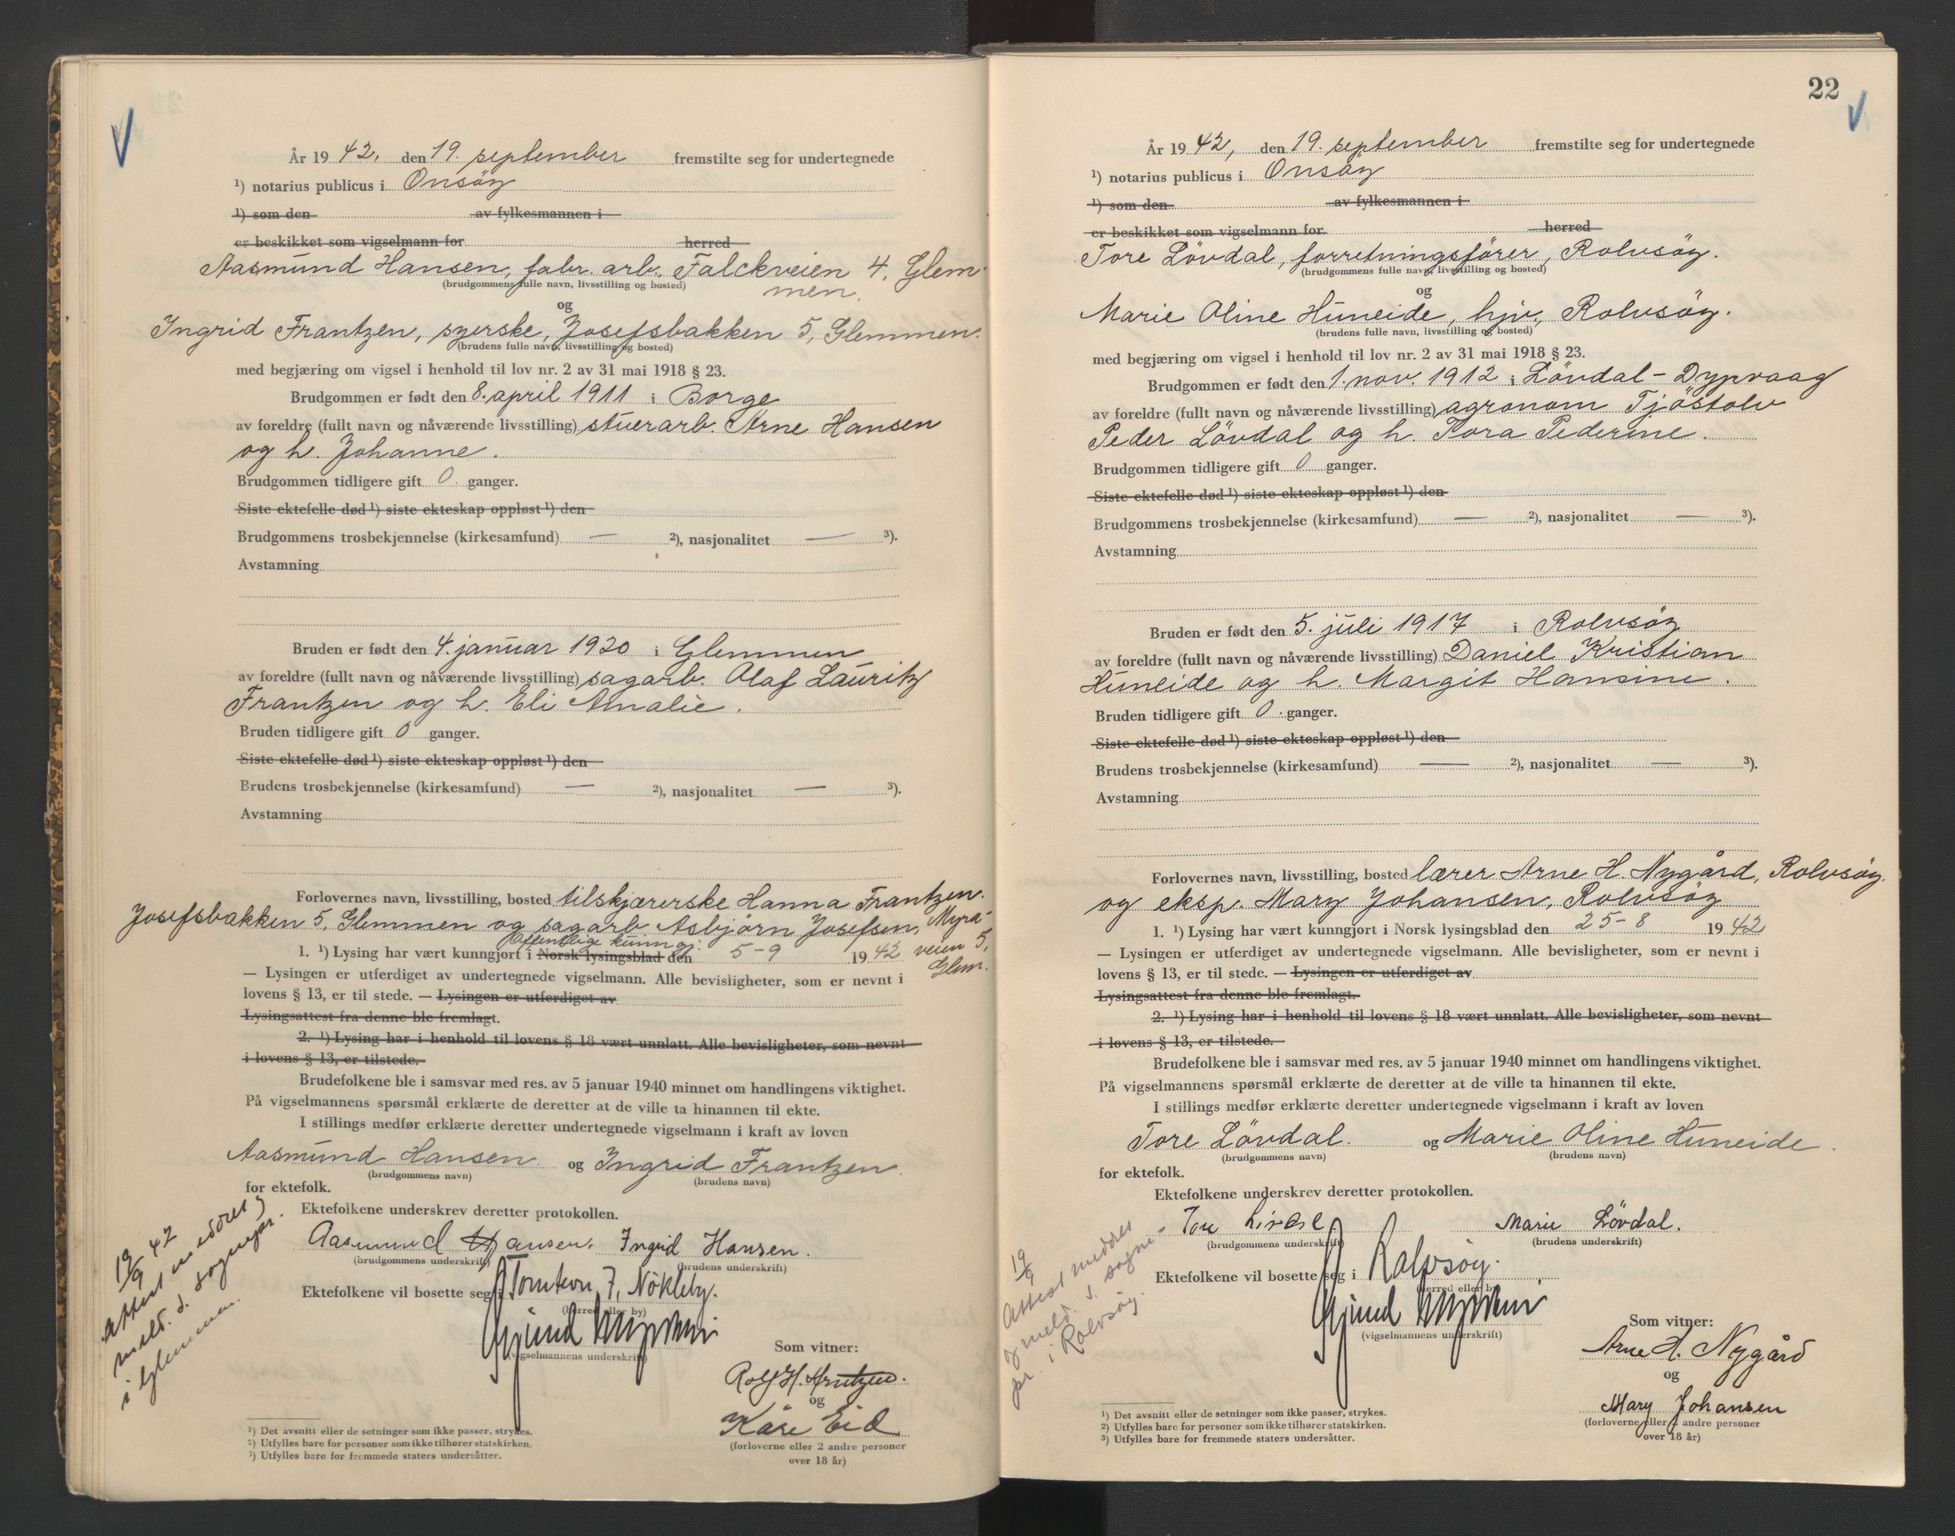 År 1942. den 19. september fremstilte seg for undertegnede
¹) notarius publicus i Onsøy
¹) som den av fylkesmannen i
er beskikket som vigselmann for herred
Aasmund Hansen, fabr. arb. Falckveien 4, Glem-
(brudgommens fulle navn, livsstilling og bosted)
men.
og
Ingrid Frantzen, syerske, Josefsbakken 5, Glemmen.
(brudens fulle navn, livsstilling og bosted)
med begjæring om vigsel i henhold til lov nr. 2 av 31 mai 1918 § 23.
Brudgommen er født den 8. april 1911 i Borge
av foreldre (fullt navn og nåværende livsstilling) stuerarb. Arne Hansen
og h. Johanne.
Brudgommen tidligere gift 0 ganger.
Siste ektefelle død ¹) siste ekteskap oppløst ¹) den
Brudgommens trosbekjennelse (kirkesamfund) — ²), nasjonalitet — ³).
Avstamning
Bruden er født den 4. januar 1920 i Glemmen
av foreldre (fullt navn og nåværende livsstilling) sagarb. Olaf Lauritz
Frantzen og h. Eli Amalie.
Bruden tidligere gift 0 ganger.
Siste ektefelle død ¹) siste ekteskap oppløst ¹) den
Brudens trosbekjennelse (kirkesamfund) — ²), nasjonalitet — ³).
Avstamning
Forlovernes navn, livsstilling, bosted tilskjærerske Hanna Frantzen.
Josefsbakken 5, Glemmen og sagarb. Asbjørn Josefsen, Myra-
Offentlige kunngj.
1. ¹) Lysing har vært kunngjort i Norsk lysingsblad den 5-9 1942 veien 5,
Glem.
— Lysingen er utferdiget av undertegnede vigselmann. Alle bevisligheter, som er nevnt i
lovens § 13, er til stede. — Lysingen er utferdiget av
Lysingsattest fra denne ble fremlagt.
2. ¹) Lysing har i henhold til lovens § 18 vært unnlatt. Alle bevisligheter, som nevnt
i lovens § 13, er tilstede.
Brudefolkene ble i samsvar med res. av 5 januar 1940 minnet om handlingens viktighet.
På vigselmannens spørsmål erklærte de deretter at de ville ta hinannen til ekte.
I stillings medfør erklærte deretter undertegnede vigselmann i kraft av loven
Aasmund Hansen og Ingrid Frantzen.
(brudgommens navn) (brudens navn)
for ektefolk.
Ektefolkene underskrev deretter protokollen.
Aasmund Hansen. Ingrid Hansen.
(brudgommens underskrift) (brudens underskrift)
Ektefolkene vil bosette seg i Tomtevn 7, Nökleby.
(herred eller by)
(vigselmannens underskrift)
Som vitner:
Rolf H. Arntzen.
og
Kåre Eid
(forloverne eller 2 andre personer
over 18 år)
19/9 42
Attest
meld. s. sognepr.
i Glemmen.
¹) Det avsnitt eller de setninger som ikke passer, strykes.
²) Utfylles bare for personer som ikke tilhører statskirken.
³) Utfylles bare for fremmede staters undersåtter.
22
År 1942, den 19. september fremstilte seg for undertegnede
¹) notarius publicus i Onsøy
¹) som den av fylkesmannen i
er beskikket som vigselmann for herred
Tore Lövdal, forretningsfører, Rolvsöy.
(brudgommens fulle navn, livsstilling og bosted)
og
Marie Oline Huneide, hjv, Rolvsöy.
(brudens fulle navn, livsstilling og bosted)
med begjæring om vigsel i henhold til lov nr. 2 av 31 mai 1918 § 23.
Brudgommen er født den 1. nov. 1912 i Lövdal - Dypvaag
av foreldre (fullt navn og nåværende livsstilling) agronom Tjöstolv
Peder Lövdal og h. Tora Pederine.
Brudgommen tidligere gift 0 ganger.
Siste ektefelle død ¹) siste ekteskap oppløst ¹) den
Brudgommens trosbekjennelse (kirkesamfund) — ²), nasjonalitet — ³).
Avstamning
Bruden er født den 5. juli 1917 i Rolvsöy
av foreldre (fullt navn og nåværende livsstilling) Daniel Kristian
Huneide og h. Margit Hansine.
Bruden tidligere gift 0 ganger.
Siste ektefelle død ¹) siste ekteskap oppløst ¹) den
Brudens trosbekjennelse (kirkesamfund) — ²), nasjonalitet — ³).
Avstamning
Forlovernes navn, livsstilling, bosted lærer Arne H. Nygård, Rolvsöy.
og eksp. Mary Johansen, Rolvsöy
1. ¹) Lysing har vært kunngjort i Norsk lysingsblad den 25-8 1942
— Lysningen er utferdiget av undertegnede vigselmann. Alle bevisligheter, som er nevnt i
lovens § 13, er til stede. — Lysingen er utferdiget av
Lysingsattest fra denne ble fremlagt.
2. ¹) Lysing har i henhold til lovens § 18 vært unnlatt. Alle bevisligheter, som nevnt
i lovens § 13, er tilstede.
Brudefolkene ble i samsvar med res. av 5 januar 1940 minnet om handlingens viktighet.
På vigselmannens spørsmål erklærte de deretter at de ville ta hinannen til ekte.
I stillings medfør erklærte deretter undertegnede vigselmann i kraft av loven
Tore Lövdal. og Marie Oline Huneide.
(brudgommens navn) (brudens navn)
for ektefolk.
Ektefolkene underskrev deretter protokollen.
Tore Lövdal Marie Lövdal.
(brudgommens underskrift) (brudens underskrift)
Ektefolkene vil bosette seg i Rolvsöy.
(herred eller by)
(vigselmannens underskrift)
Som vitner:
Arne H. Nygård
og
Mary Johansen
(forloverne eller 2 andre personer
over 18 år)
19/9
Attest
og meld. s. sogne-
pr. i Rolvsöy.
¹) Det avsnitt eller de setninger som ikke passer, strykes.
²) Utfylles bare for personer som ikke tilhører statskirken.
³) Utfylles bare for fremmede staters undersåtter.